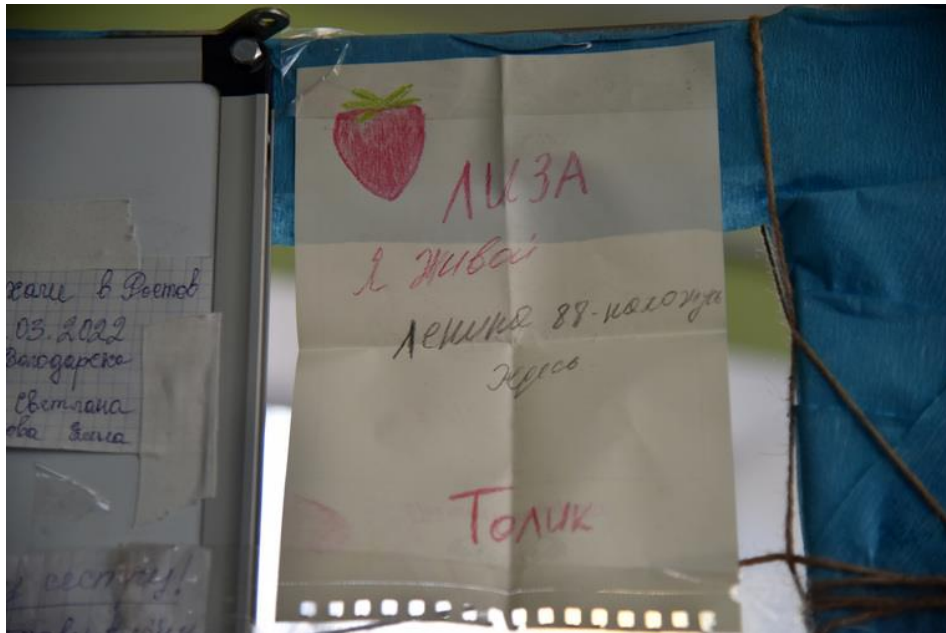 ЛИЗА
Я живой
Ленина 88-нахожусь
здесь
Толик
хали в Ростов
03.2022
Володарско
Светлана
ова
у сестру!